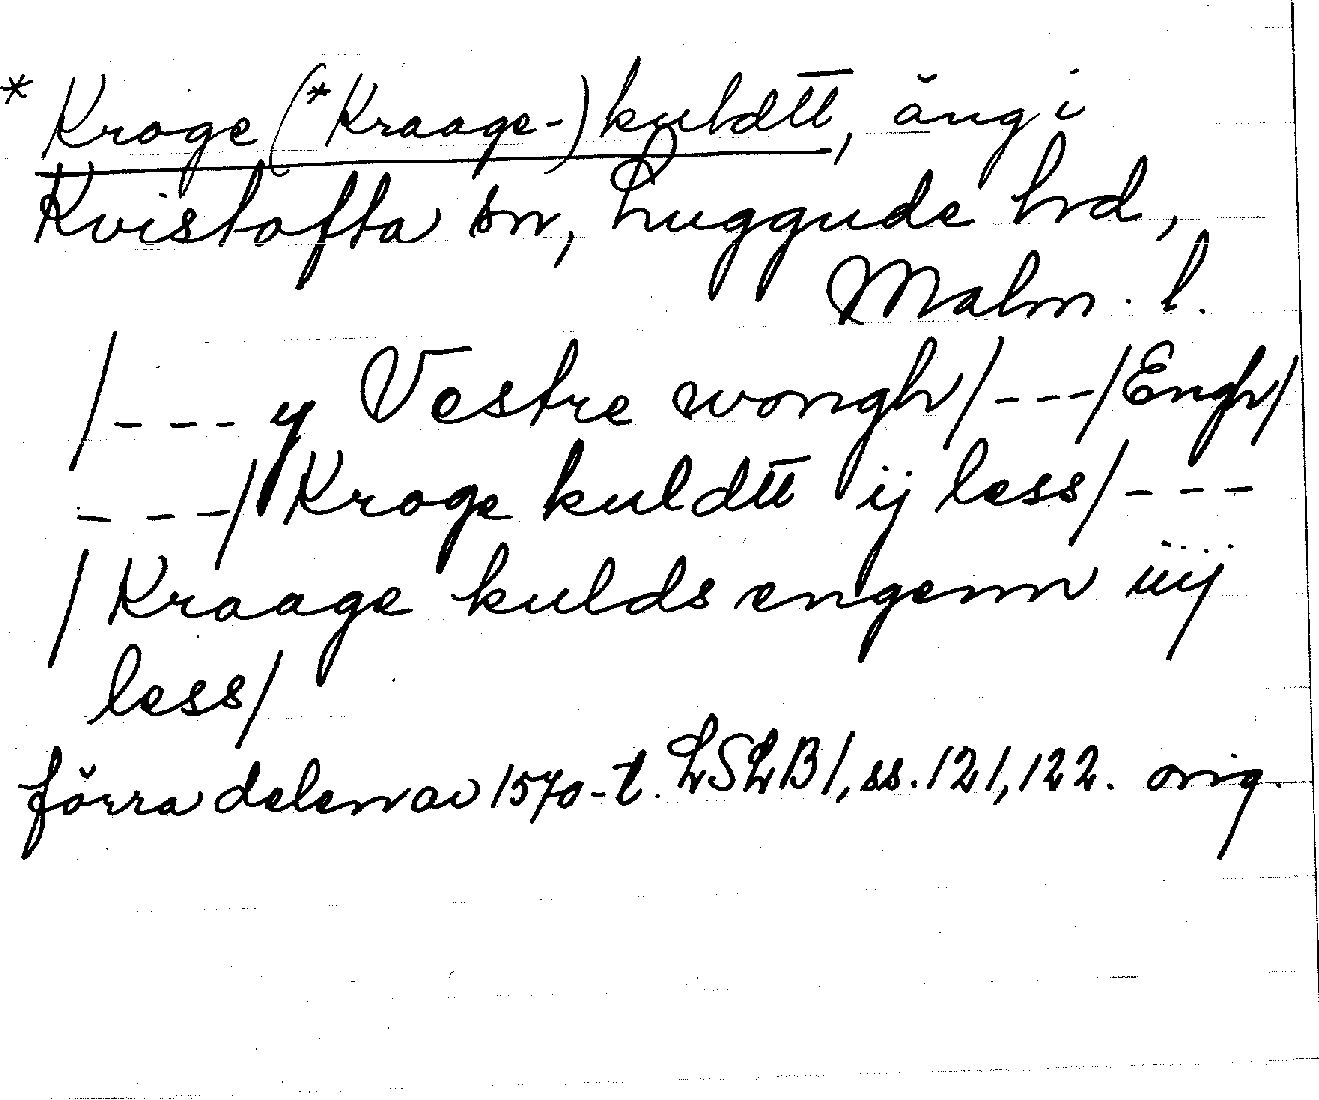 * Kroge (*Kraage-) kuldtt, äng i
Kvistofta sn, Luggude hrd,
Malm. l.
/--- y Vestre wongh/---/Engh/
---/Kroge kuldtt ij less/---
/Kraage kulds engenn iiij
less/
förra delen av 1570-t. LSLB1, ss. 121, 122. orig.